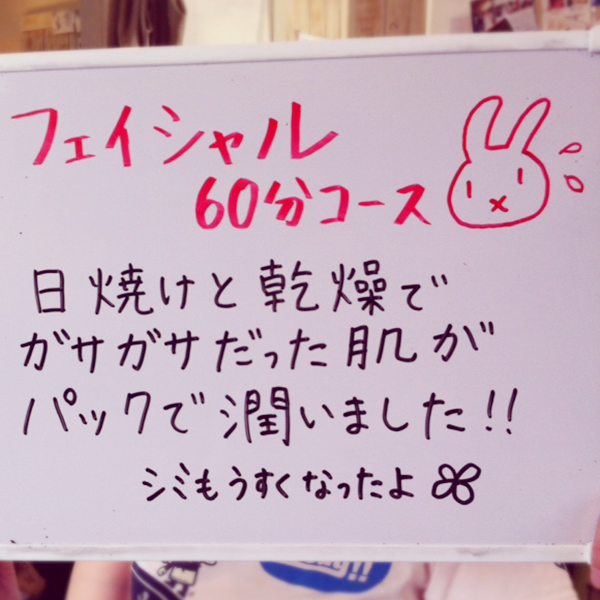 フェイシャル
60分コース
日焼けと乾燥で
ガサガサだった肌が
パックで潤いました!!
シミもうすくなったよ